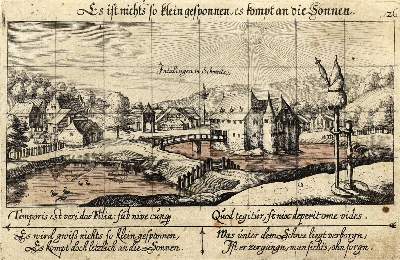 Es ist nichts so klein gesponnen, es kompt an die Sonnen.
26
Inzlingen in Schweitz
Temporis est veri dos filia: sub nive
Quod tegitur, sit nix deperit omne vides.
Es wird gwiß nichts so klein gesponnen,
Es kompt doch letzlich an die Sonnen.
Was unter dem Schnee ligt verborgn,
Ist er zergangn, man sichts, ohn sorgn.